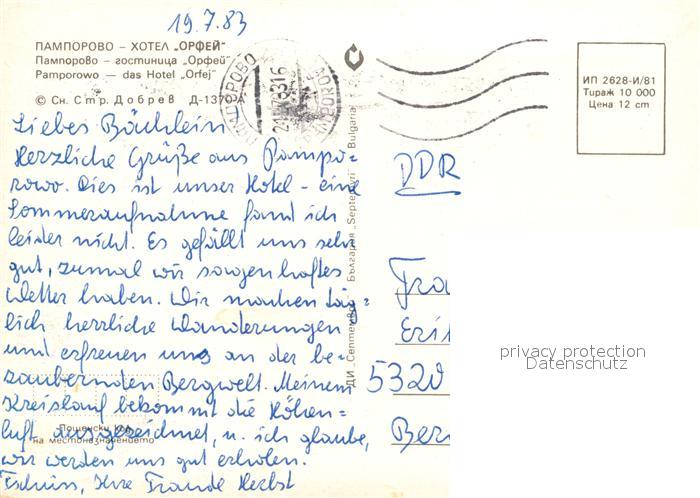 19.7.83
ПАМПОРОВО – ХОТЕЛ „ОРФЕЙ“
Пампорово – гостиница „Орфей“
Pamporowo — das Hotel „Orfej“
© Сн. Стр. Добрев Д-1370-А
Liebes Bächlein
Herzliche Grüße aus Pampo-
rowo. Dies ist unser Hotel – eine
Sommeraufnahme fand ich
leider nicht. Es gefällt uns sehr
gut, zumal wir sagenhaftes
Wetter haben. Wir machen täg=
lich herrliche Wanderungen
und erfreuen uns an der be-
zaubernden Bergwelt. Meinem
Kreislauf bekommt die Höhen=
luft ausgezeichnet, u. ich glaube,
wir werden uns gut erholen.
Tschüss, Ihre Traude Herbst
Пощенски код
на местоназначението
ДИ „Септември“ България „Septemvri“ Bulgaria
ИП 2628-И/81
Тираж 10 000
Цена 12 cm
DDR
Frau
Eri
5320
privacy protection
Datenschutz